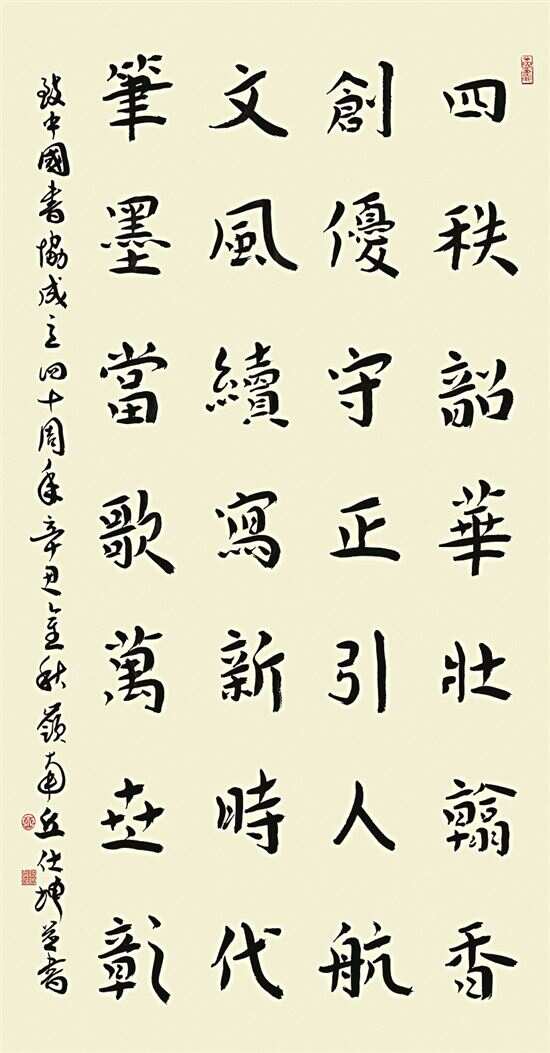 四秩韶華壯翰香
創優守正引人航
文風續寫新時代
筆墨當歌萬世彰
致中國書協成立四十周年辛丑金秋嶺南丘仕坤並書